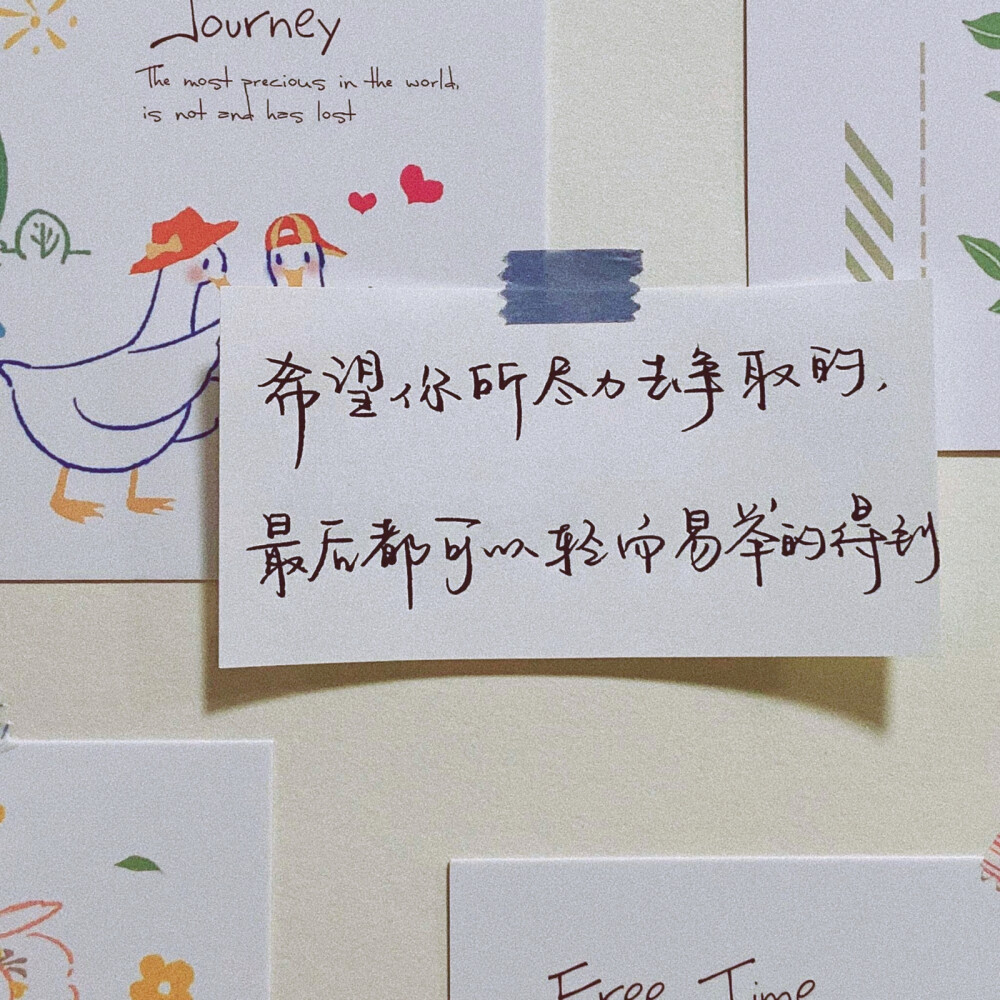 Journey
The most precious in the world,
is not and has lost
希望你所尽力去争取的，
最后都可以轻而易举的得到
Free Time